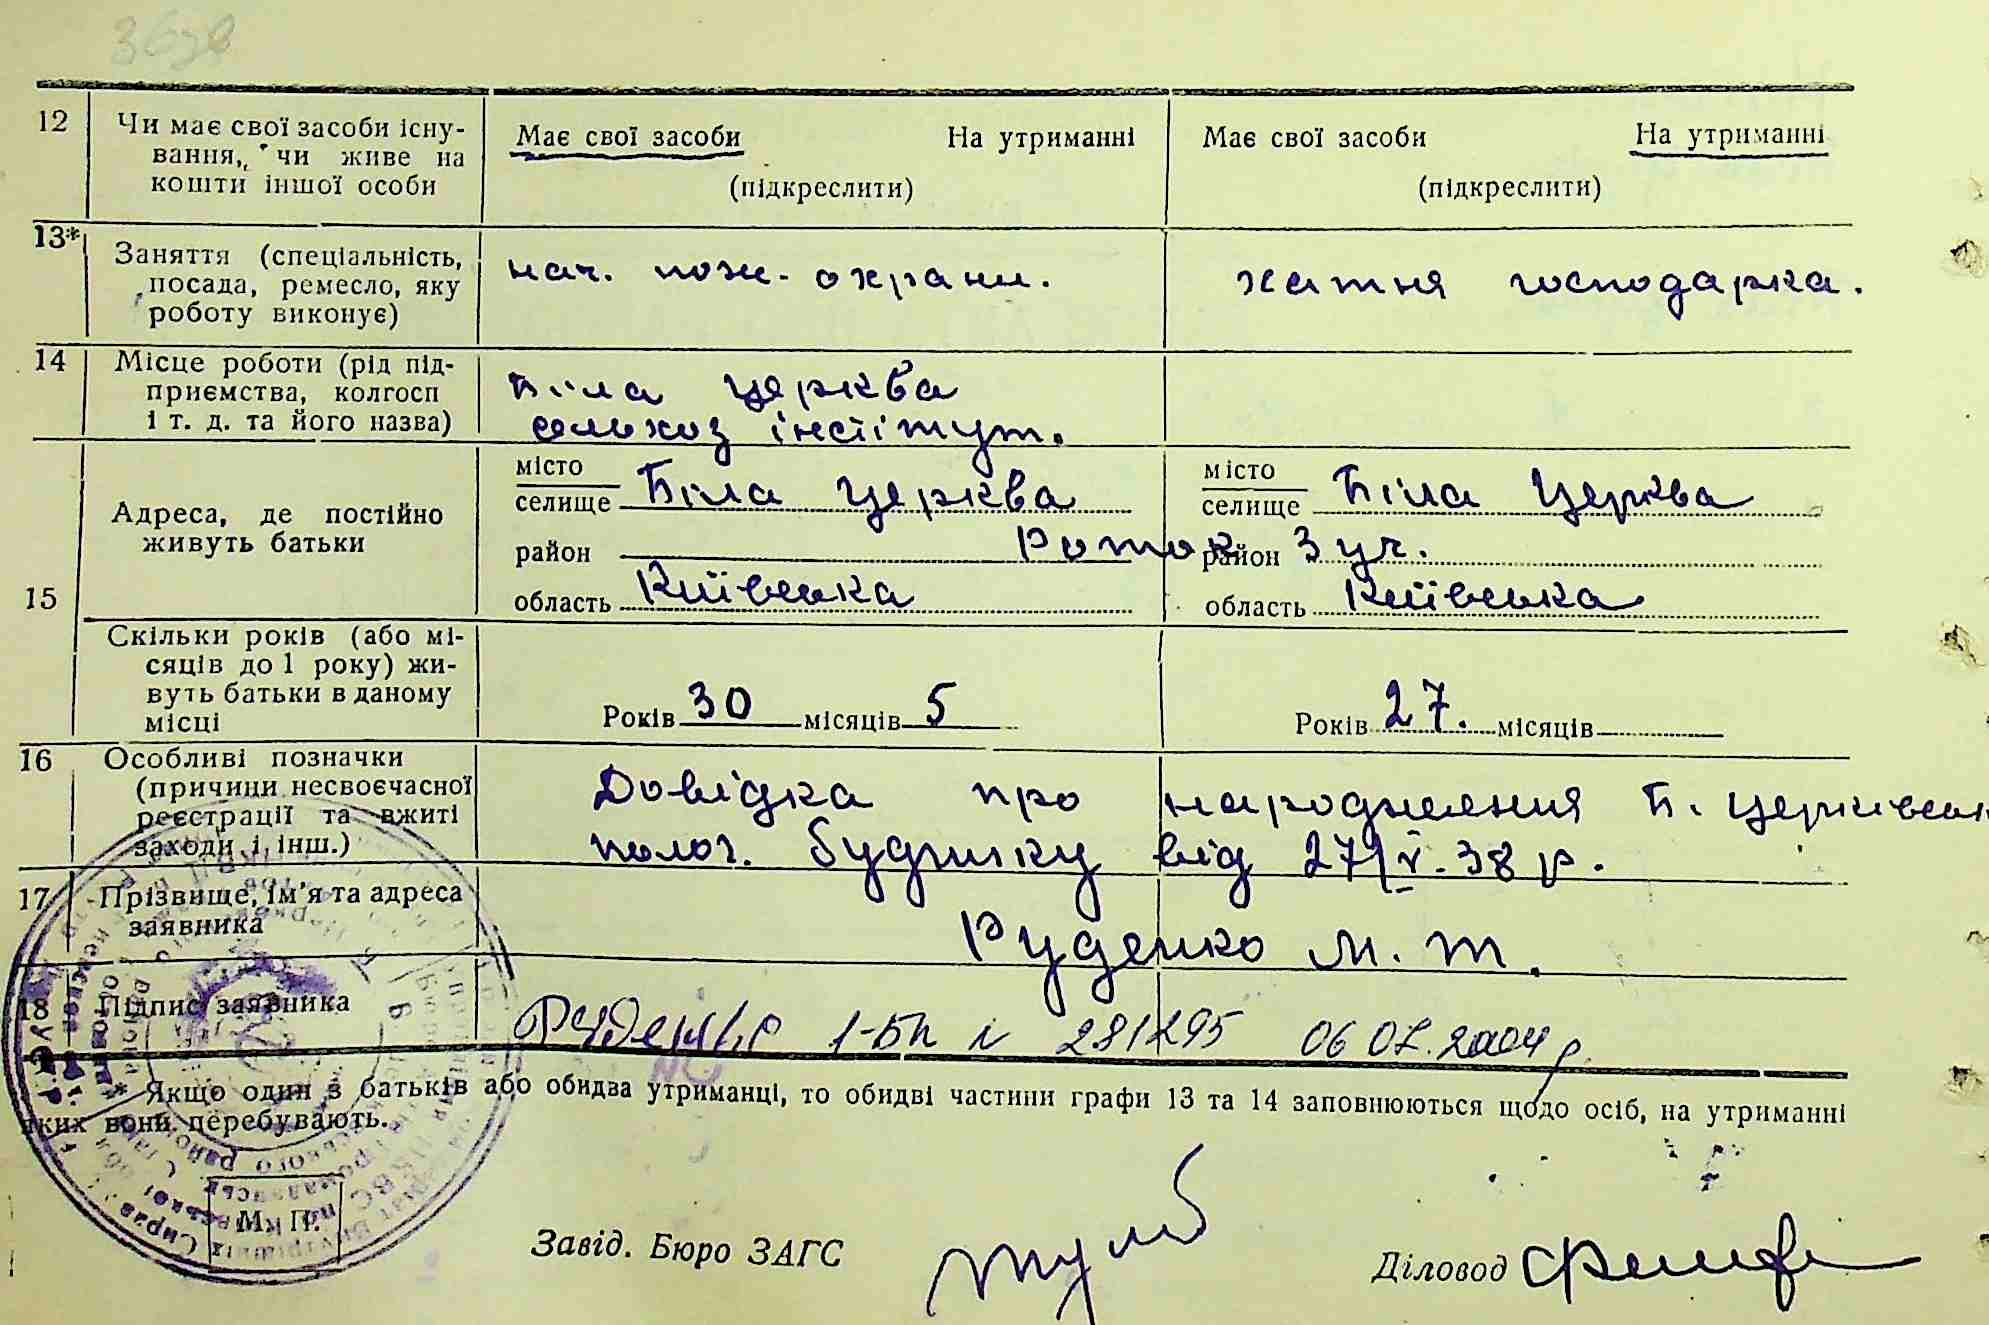 3638
12 Чи має свої засоби існу-
вання, чи живе на
кошти іншої особи
Має свої засоби На утриманні
(підкреслити)
Має свої засоби На утриманні
(підкреслити)
13* Заняття (спеціальність,
посада, ремесло, яку
роботу виконує)
нач. пож. охрани.
хатня господарка.
14 Місце роботи (рід під-
приємства, колгосп
і т. д. та його назва)
Біла Церква
сельхоз інстітут.
15 Адреса, де постійно
живуть батьки
місто
селище Біла Церква
район Роток
область Київська
місто
селище Біла Церква
район 3 уч.
область Київська
Скільки років (або мі-
сяців до 1 року) жи-
вуть батьки в даному
місці
Років 30 місяців 5
Років 27. місяців
16 Особливі позначки
(причини несвоєчасної
реєстрації та вжиті
заходи і інш.)
Довідка про народження Б. Церківськ
полог. будинку від 27/V.38 р.
17 Прізвище, ім'я та адреса
заявника
Руденко М. Т.
18 Підпис заявника
Руденко 1-БК № 281295 06 07.2004 р.
* Якщо один з батьків або обидва утриманці, то обидві частини графи 13 та 14 заповнюються щодо осіб, на утриманні
яких вони перебувають.
М. П.
Завід. Бюро ЗАГС
Діловод